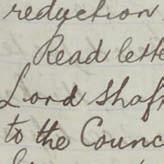 reduction
Read lette
Lord Shaf
to the Counc